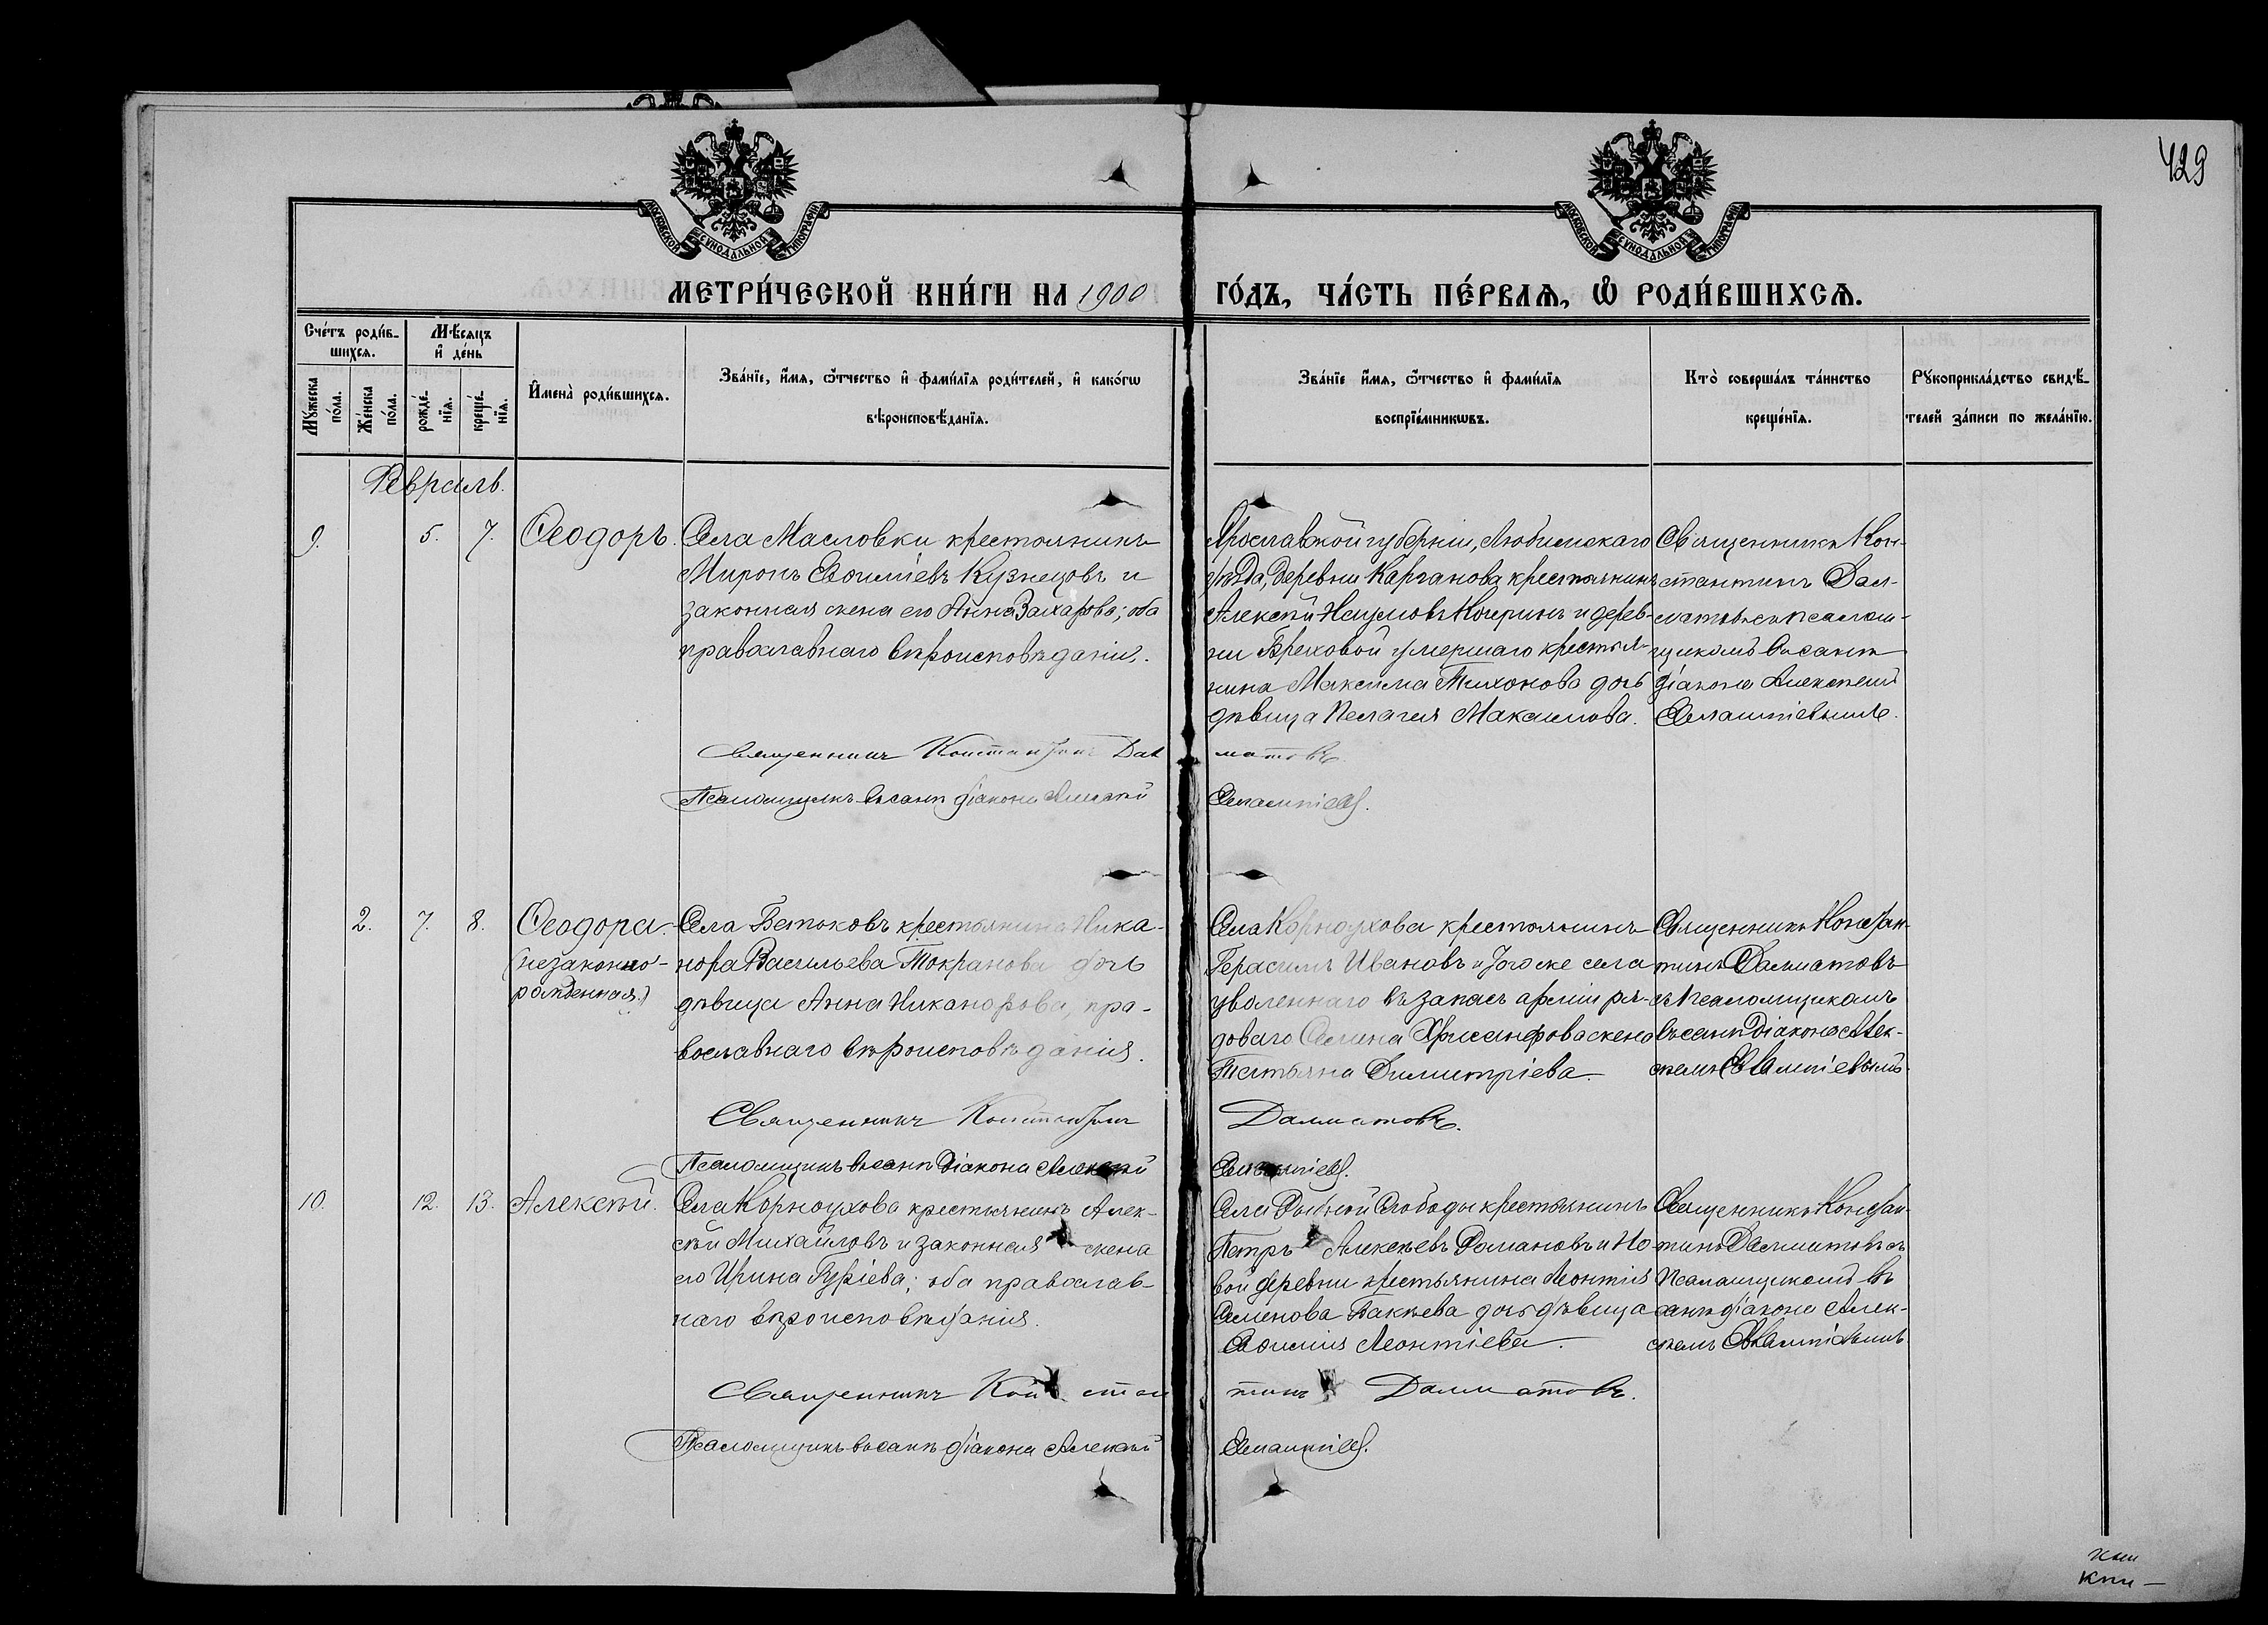 429
МОСКОВСКОЙ СѴНОДАЛЬНОЙ ТИПОГРАФІИ
МОСКОВСКОЙ СѴНОДАЛЬНОЙ ТИПОГРАФІИ
МЕТРИ́ЧЕСКОЙ КНИ́ГИ НА 1900 ГО́ДЪ, ЧА́СТЬ ПЕ́РВАѦ, Ѽ РОДИ́ВШИХСѦ.
Сче́тъ роди́в-
шихсѧ.
Мꙋ́жеска по́ла.
Же́нска по́ла.
Мѣ́сѧцъ
и҆ де́нь
рожде́-нїѧ.
креще́-нїѧ.
И҆мена̀ роди́вшихсѧ.
Зва́нїе, и҆́мѧ, ѻ҆́тчество и҆ фами́лїѧ роди́телей, и҆ како́гѡ
вѣроисповѣ́данїѧ.
Зва́нїе и҆́мѧ, ѻ҆́тчество и҆ фами́лїѧ
воспрїе́мникѡвъ.
Кто̀ соверша́лъ та́инство
креще́нїѧ.
Рꙋкоприкла́дство свидѣ́-
телей за́писи по жела́нїю.
Февраль.
9. 5. 7. Ѳеодоръ.
Села Масловки крестьянинъ
Миронъ Евѳиміевъ Кузнецовъ и
законная жена его Анна Захарова; оба
православнаго вѣроисповѣданія.
Ярославской губерніи, Любимскаго
уѣзда, деревни Карганова крестьянинъ
Алексѣй Наумовъ Кочеринъ и дерев-
ни Бреховой умершаго крестья-
нина Максима Тихонова дочь
дѣвица Пелагея Максимова.
Священникъ Кон-
стантинъ Дал-
матовъ съ псалом-
щикомъ въ санѣ
діакона Алексѣемъ
Евлампіевымъ.
Священникъ Константинъ Далматовъ.
Псаломщикъ въ санѣ діакона Алексѣй Евлампіевъ.
2. 7. 8. Ѳеодора.
(незаконно-
рожденная.)
Села Бетьковъ крестьянина Ника-
нора Васильева Токранова дочь
дѣвица Анна Никанорова, пра-
вославнаго вѣроисповѣданія.
Села Корноухова крестьянинъ
Герасимъ Ивановъ и того же села
уволеннаго въ запасъ арміи ря-
доваго Семена Хрисанфова жена
Татьяна Димитріева.
Священникъ Констан-
тинъ Далматовъ
съ псаломщикомъ
въ санѣ діакона Алек-
сѣемъ Евлампіевымъ.
Священникъ Константинъ Далматовъ.
Псаломщикъ въ санѣ діакона Алексѣй Евлампіевъ.
10. 12. 13. Алексѣй.
Села Корноухова крестьянинъ Алек-
сѣй Михайловъ и законная жена
его Ирина Гуріева; оба православ-
наго вѣроисповѣданія.
Села Рыбной Слободы крестьянинъ
Петръ Алексѣевъ Романовъ и Но-
вой деревни крестьянина Леонтія
Семенова Бакѣева дочь дѣвица
Евѳимія Леонтіева.
Священникъ Констан-
тинъ Далматовъ съ
псаломщикомъ въ
санѣ діакона Алек-
сѣемъ Евлампіевымъ.
Священникъ Константинъ Далматовъ.
Псаломщикъ въ санѣ діакона Алексѣй Евлампіевъ.